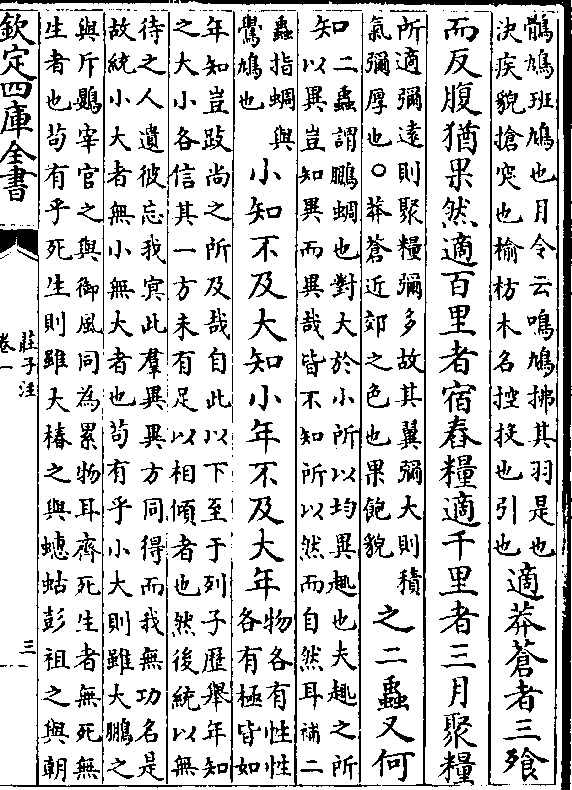 鶻鳩班鳩也月令云鳴鳩拂其羽是也
决疾貌搶突也榆枋木名控投也引也
適莽蒼者三飱
而反腹猶果然適百里者宿舂糧適千里者三月聚糧
所適彌遠則聚糧彌多故其翼彌大則積
氣彌厚也○莽蒼近郊之色也果飽貌
之二蟲又何
知二蟲謂鵬蜩也對大於小所以均異趣也夫趣之所
知以異豈知異而異哉皆不知所以然而自然耳補二
蟲指蜩與
鷽鳩也
小知不及大知小年不及大年
物各有性性
各有極皆如
年知豈跂尚之所及哉自此以下至于列子歴舉年知
之大小各信其一方未有足以相傾者也然後統以無
待之人遺彼忘我㝠此羣異異方同得而我無功名是
故統小大者無小無大者也茍有乎小大則雖大鵬之
與斥鷃宰官之與御風同為累物耳齊死生者無死無
生者也茍有乎死生則雖大椿之與蟪蛄彭祖之與朝
欽定四庫全書
莊子注
卷一
三